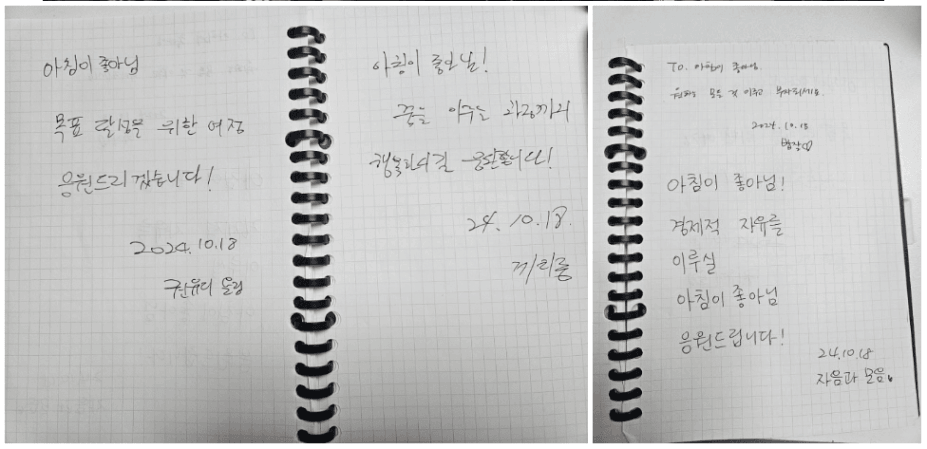 아침이 좋아님
목표 달성을 위한 여정
응원드리겠습니다!
2024.10.18
드림
아침이 좋아님!
꿈을 이루는 과정까지
행복하시길 응원합니다!
24.10.18.
To. 아침이 좋아님
원하는 모든 것 이루고 부자되세요.
2024.10.18
아침이 좋아님!
경제적 자유를
이루실
아침이 좋아님
응원드립니다!
24.10.18
자음과 모음